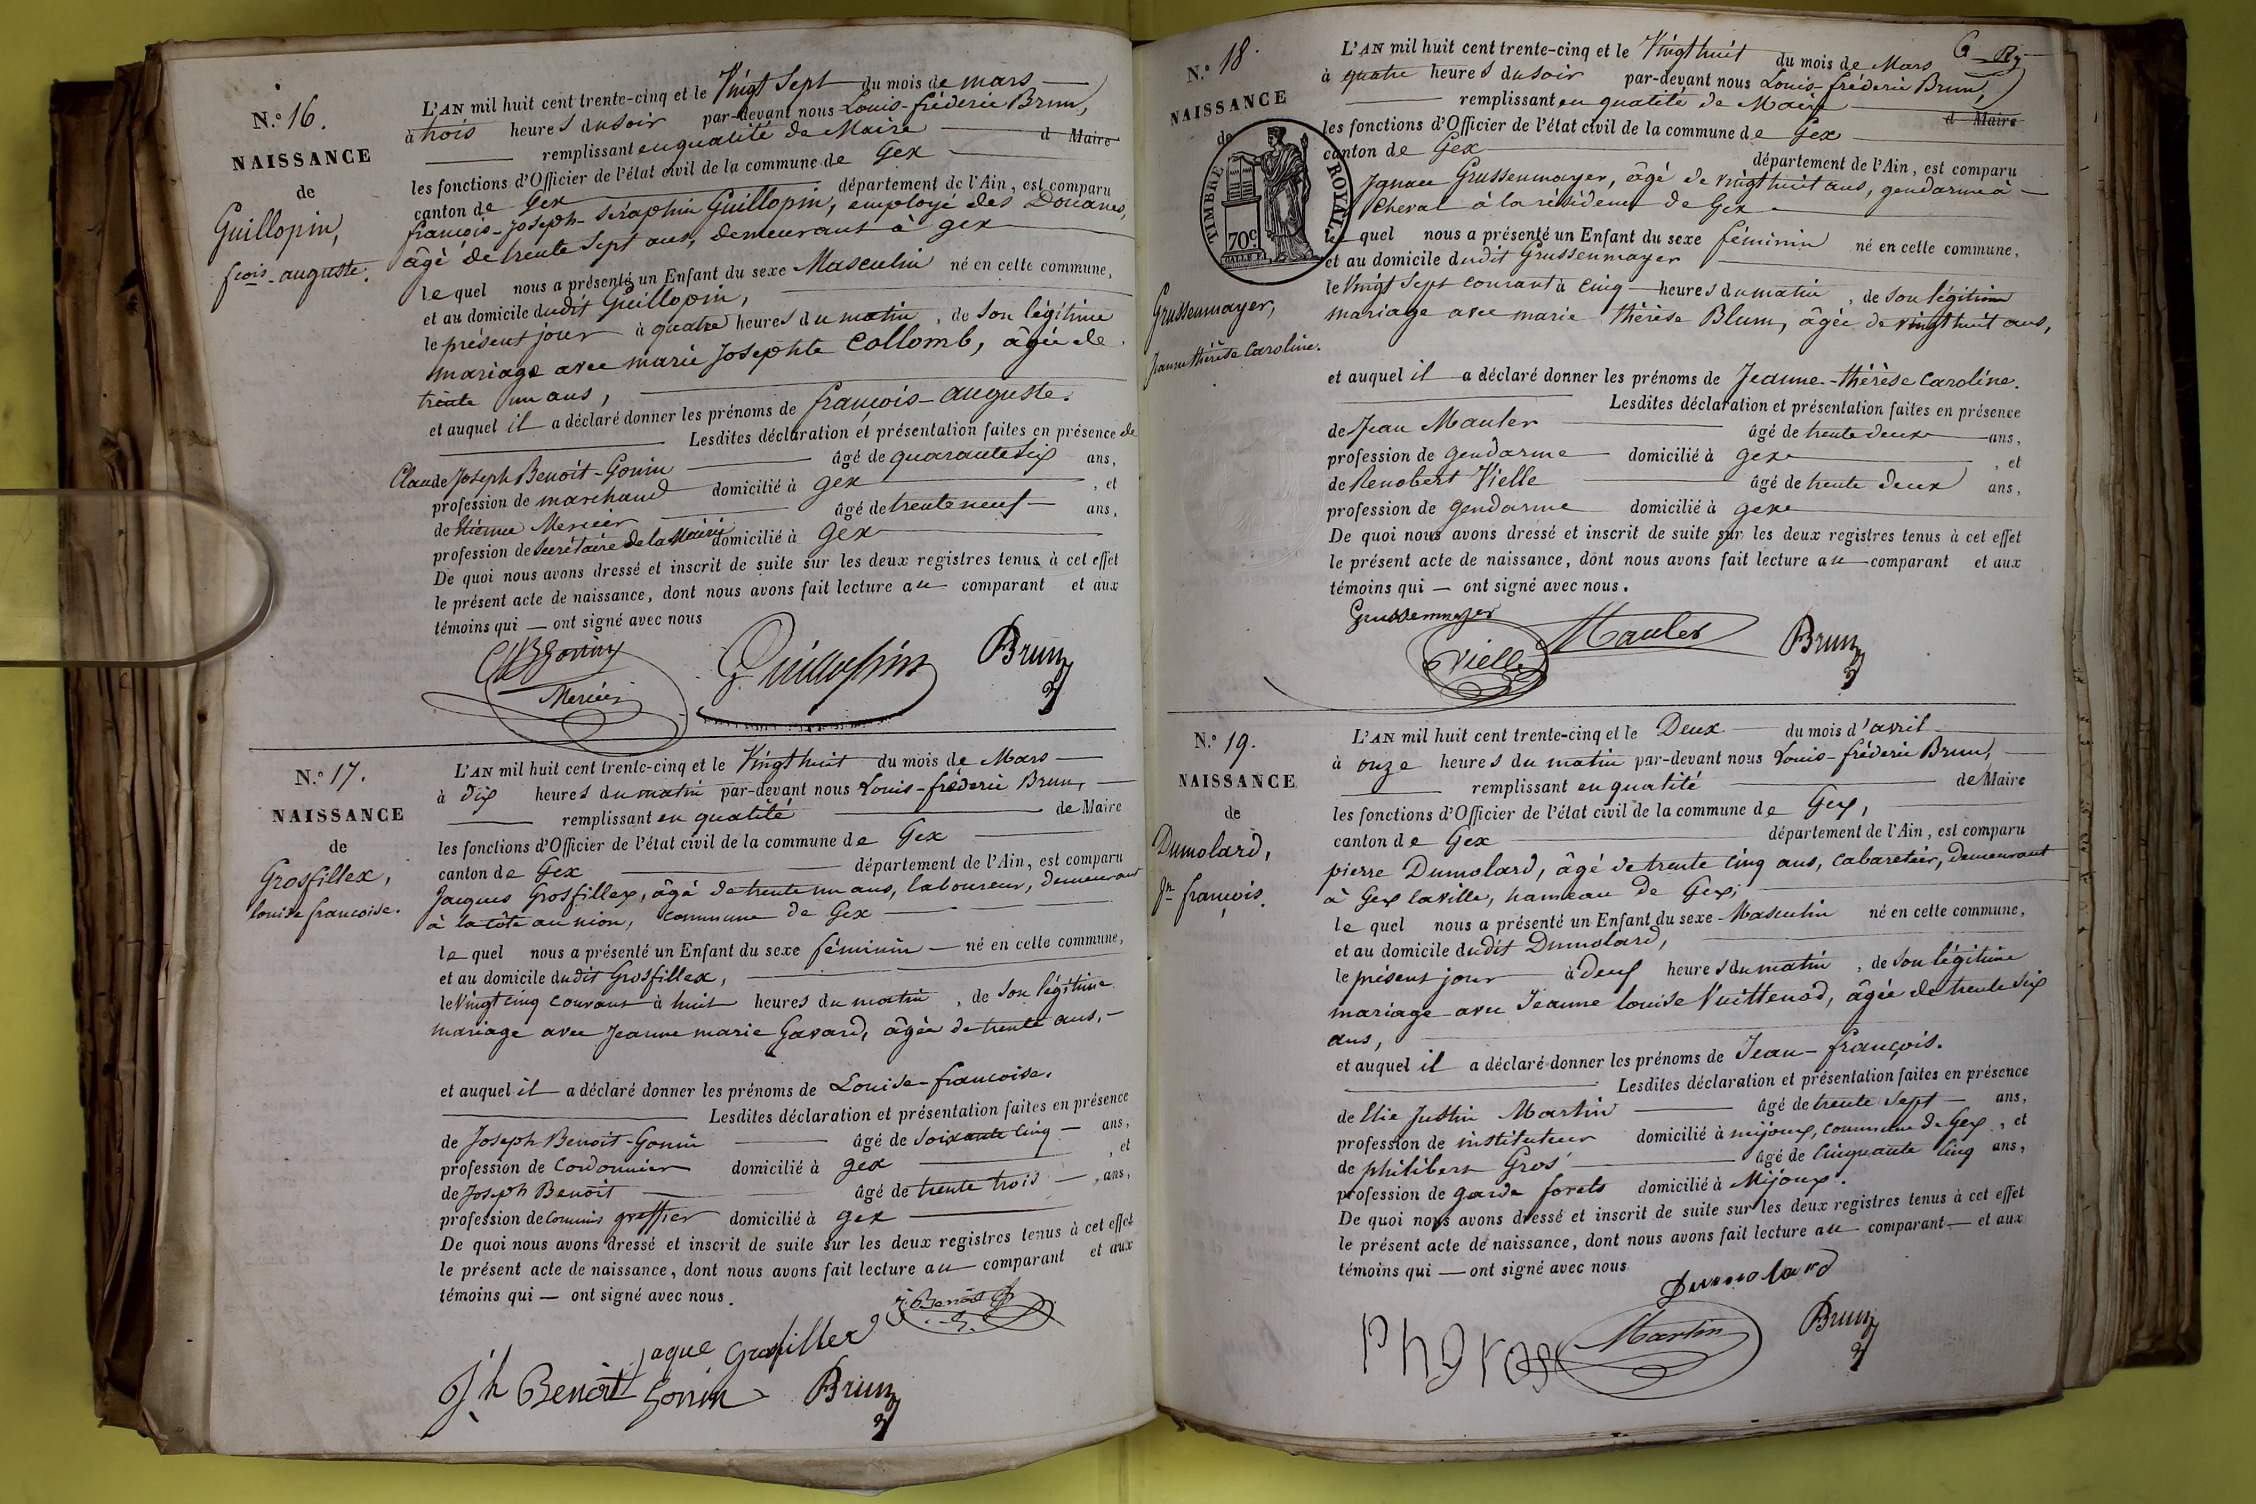 N.° 16.
NAISSANCE
de
Guillopin,
fcois-auguste.
L'AN mil huit cent trente-cinq et le Vingt Sept du mois de mars
à trois heures du soir par-devant nous Louis-fréderic Brun,
remplissant en qualité de Maire d Maire
les fonctions d'Officier de l'état civil de la commune de Gex
canton de Gex département de l'Ain, est comparu
françois-Joseph-Séraphin Guillopin, employé des Douanes,
âgé de trente Sept ans, demeurant à gex
le quel nous a présenté un Enfant du sexe Masculin né en cette commune,
et au domicile dudit Guillopin,
le présent jour à quatre heures du matin, de son légitime
mariage avec marie Josephte Collomb, âgée de
trente un ans,
et auquel il a déclaré donner les prénoms de françois-auguste.
Lesdites déclaration et présentation faites en présence de
Claude Joseph Benoit-Gonin âgé de quarante Six ans,
profession de marchand domicilié à gex, et
de Etienne Mercier âgé de trente neuf ans,
profession de Secrétaire de la Mairie domicilié à Gex
De quoi nous avons dressé et inscrit de suite sur les deux registres tenus à cet effet
le présent acte de naissance, dont nous avons fait lecture au comparant et aux
témoins qui ont signé avec nous
Guillopin Brun
Mercier
N.° 17.
NAISSANCE
de
Grosfillex,
louise françoise.
L'AN mil huit cent trente-cinq et le Vingt huit du mois de Mars
à dix heures du matin par-devant nous Louis-fréderic Brun,
remplissant en qualité de Maire
les fonctions d'Officier de l'état civil de la commune de Gex
canton de Gex département de l'Ain, est comparu
Jacques Grosfillex, âgé de trente un ans, laboureur, demeurant
à la côte au nion, commune de Gex
le quel nous a présenté un Enfant du sexe féminin né en cette commune,
et au domicile dudit Grosfillex,
le Vingt cinq courant à huit heures du matin, de Son légitime
mariage avec Jeanne marie Gavard, âgée de trente ans,
et auquel il a déclaré donner les prénoms de Louise-francoise.
Lesdites déclaration et présentation faites en présence
de Joseph Benoit-Gonin âgé de Soixante cinq ans,
profession de Cordonnier domicilié à gex, et
de Joseph Benoit âgé de trente trois, ans,
profession de Commis greffier domicilié à gex
De quoi nous avons dressé et inscrit de suite sur les deux registres tenus à cet effet
le présent acte de naissance, dont nous avons fait lecture au comparant et aux
témoins qui ont signé avec nous.
J. Benoit
Jaque Grosfillex
Jh Benoit Gonin Brun
N.° 18.
NAISSANCE
de
TIMBRE ROYAL
70c
Grussenmayer,
Jeanne thérèse Caroline.
L'AN mil huit cent trente-cinq et le Vingt huit du mois de Mars
à quatre heures du soir par-devant nous Louis-fréderic Brun,
remplissant en qualité de Maire d Maire
les fonctions d'Officier de l'état civil de la commune de Gex
canton de Gex département de l'Ain, est comparu
Ignace Grussenmayer, âgé de vingt huit ans, gendarme à
Cheval à la résidence de Gex
le quel nous a présenté un Enfant du sexe féminin né en cette commune,
et au domicile dudit Grussenmayer
le Vingt Sept courant à Cinq heures du matin, de son légitime
mariage avec marie thérèse Blum, âgée de vingt huit ans,
et auquel il a déclaré donner les prénoms de Jeanne-thérèse Caroline.
Lesdites déclaration et présentation faites en présence
de Jean Mauler âgé de trente deux ans,
profession de gendarme domicilié à gex, et
de Renobert Vielle âgé de trente deux ans,
profession de gendarme domicilié à gex
De quoi nous avons dressé et inscrit de suite sur les deux registres tenus à cet effet
le présent acte de naissance, dont nous avons fait lecture au comparant et aux
témoins qui ont signé avec nous.
Grussenmayer
Vielle Mauler Brun
N.° 19.
NAISSANCE
de
Dumolard,
Jn françois.
L'AN mil huit cent trente-cinq et le Deux du mois d'avril
à onze heures du matin par-devant nous Louis-fréderic Brun,
remplissant en qualité de Maire
les fonctions d'Officier de l'état civil de la commune de Gex,
canton de Gex département de l'Ain, est comparu
pierre Dumolard, âgé de trente cinq ans, cabaretier, demeurant
à Gex la ville, hameau de Gex,
le quel nous a présenté un Enfant du sexe Masculin né en cette commune,
et au domicile dudit Dumolard,
le présent jour à Deux heures du matin, de son légitime
mariage avec Jeanne louise Vuittenod, âgée de trente six
ans,
et auquel il a déclaré donner les prénoms de Jean-françois.
Lesdites déclaration et présentation faites en présence
de Elie Justin Martin âgé de trente sept ans,
profession de instituteur domicilié à mijoux, commune de Gex, et
de philibert Gros âgé de Cinquante Cinq ans,
profession de garde forets domicilié à Mijoux.
De quoi nous avons dressé et inscrit de suite sur les deux registres tenus à cet effet
le présent acte de naissance, dont nous avons fait lecture au comparant et aux
témoins qui ont signé avec nous
Dumolard
Ph gros Martin Brun